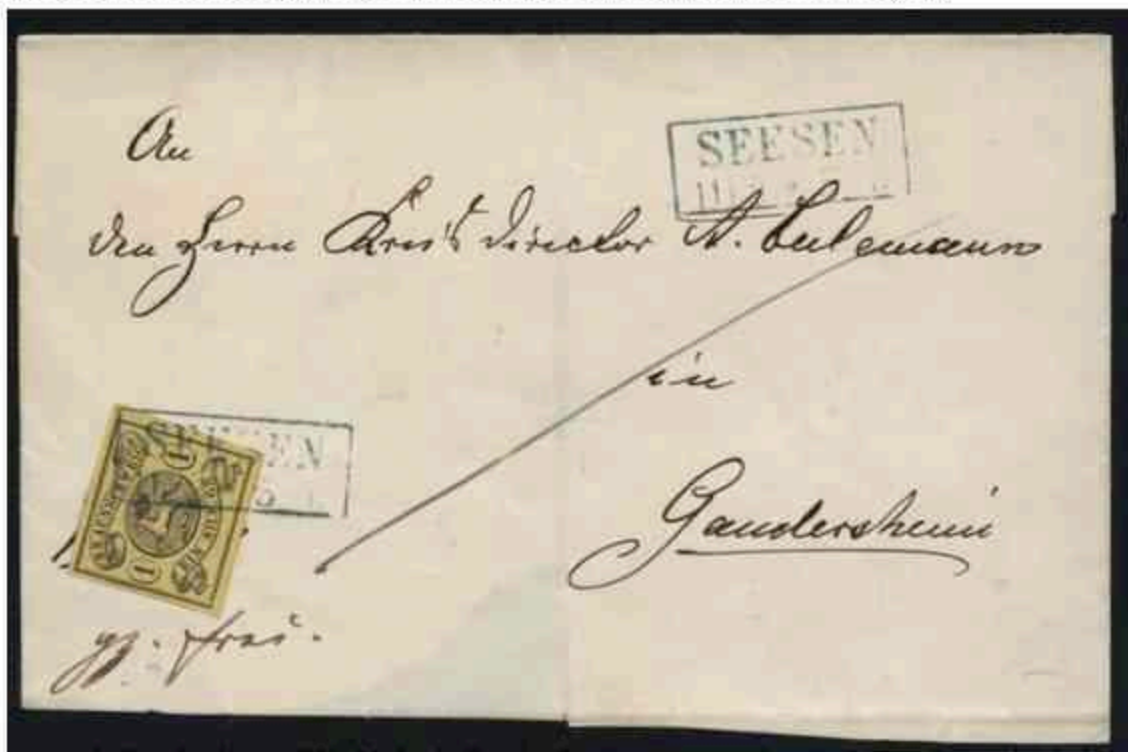 An
SEESEN
den Herrn Kreisdirector A. Culemann
in
SEESEN
1
1
Gandersheim
frei.